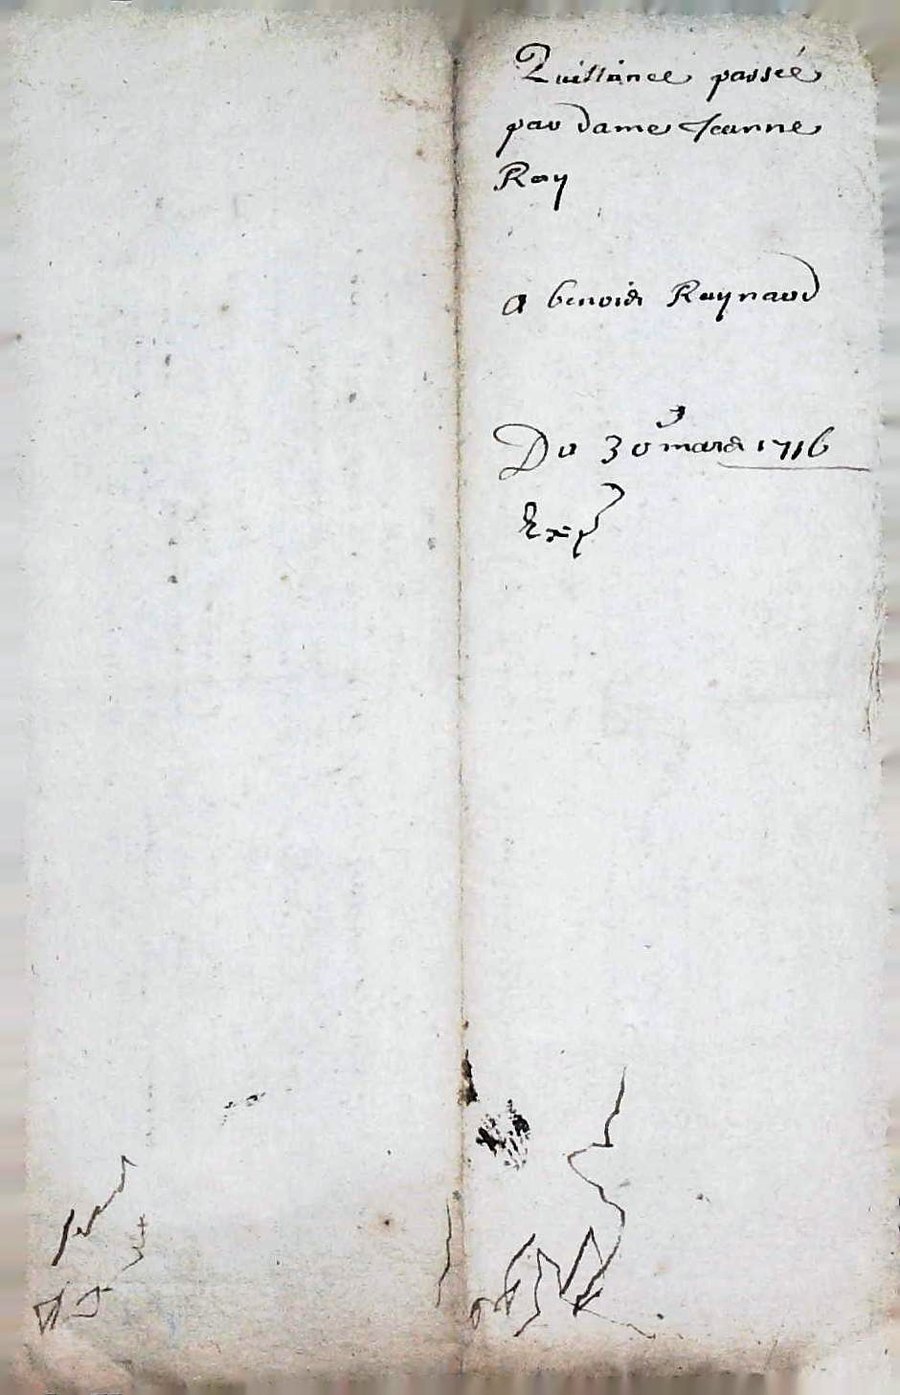 Quittance passée
par dame Jeanne
Ray
A benoist Raynaud
Du 30e mars 1716
Exp